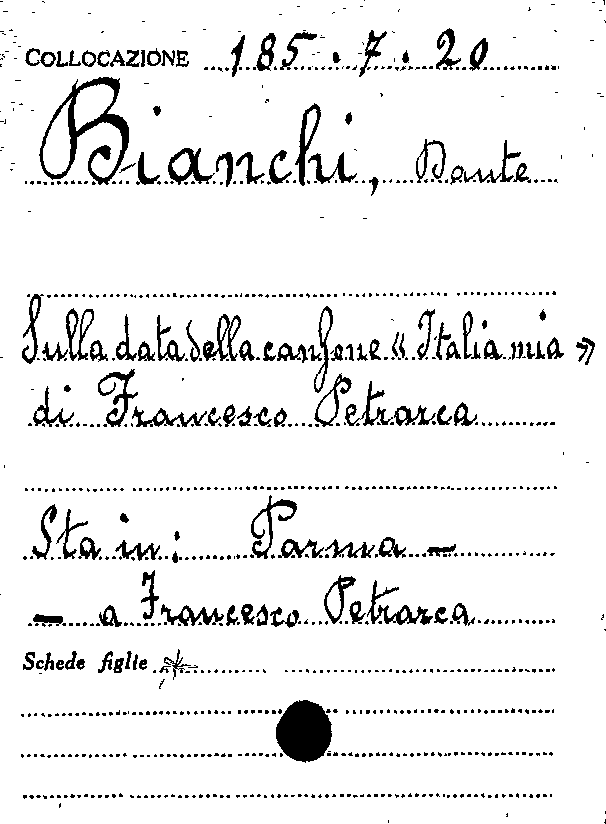 COLLOCAZIONE 185.7.20
Bianchi, Dante
Sulla data della canzone « Italia mia »
di Francesco Petrarca
Sta in: Parma —
— a Francesco Petrarca
Schede figlie